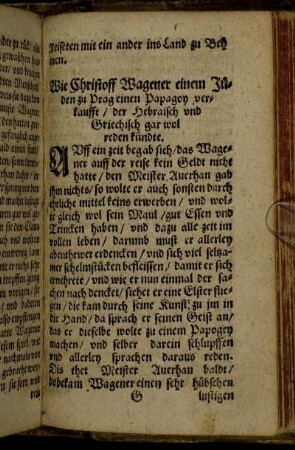 reiseten mit ein ander ins Land zu Beh
men.
Wie Christoff Wagener einem Jü-
den zu Prag einen Papagoy ver-
kauffte / der Hebraisch vnd
Griechisch gar wol
reden kündte.
AUff ein zeit begab sich / das Wage-
ner auff der reise kein Geldt nicht
hatte / den Meister Auerhan gab
ihm nichts / so wolte er auch sonsten durch
ehrliche mittel keins erwerben / vnd wol-
te gleich wol sein Maul / gut Essen vnd
Trincken haben / vnd dazu alle zeit im
vollen leben / darumb must er allerley
abenthewer erdencken / vnd sich viel seltza-
mer schelmstücken befleissen / damit er sich
ernehrete / vnd wie er nun einmal der sa-
chen nach dencket / siehet er eine Elster flie-
gen / die kam durch seine Kunst zu jm in
die Hand / da sprach er seinen Geist an /
das er dieselbe wolte zu einem Papogey
machen / vnd selber darein schlupffen
vnd allerley sprachen daraus reden.
Dis thet Meister Auerhan baldt /
vnd bekam Wagener einen sehr hübschen
G lustigen